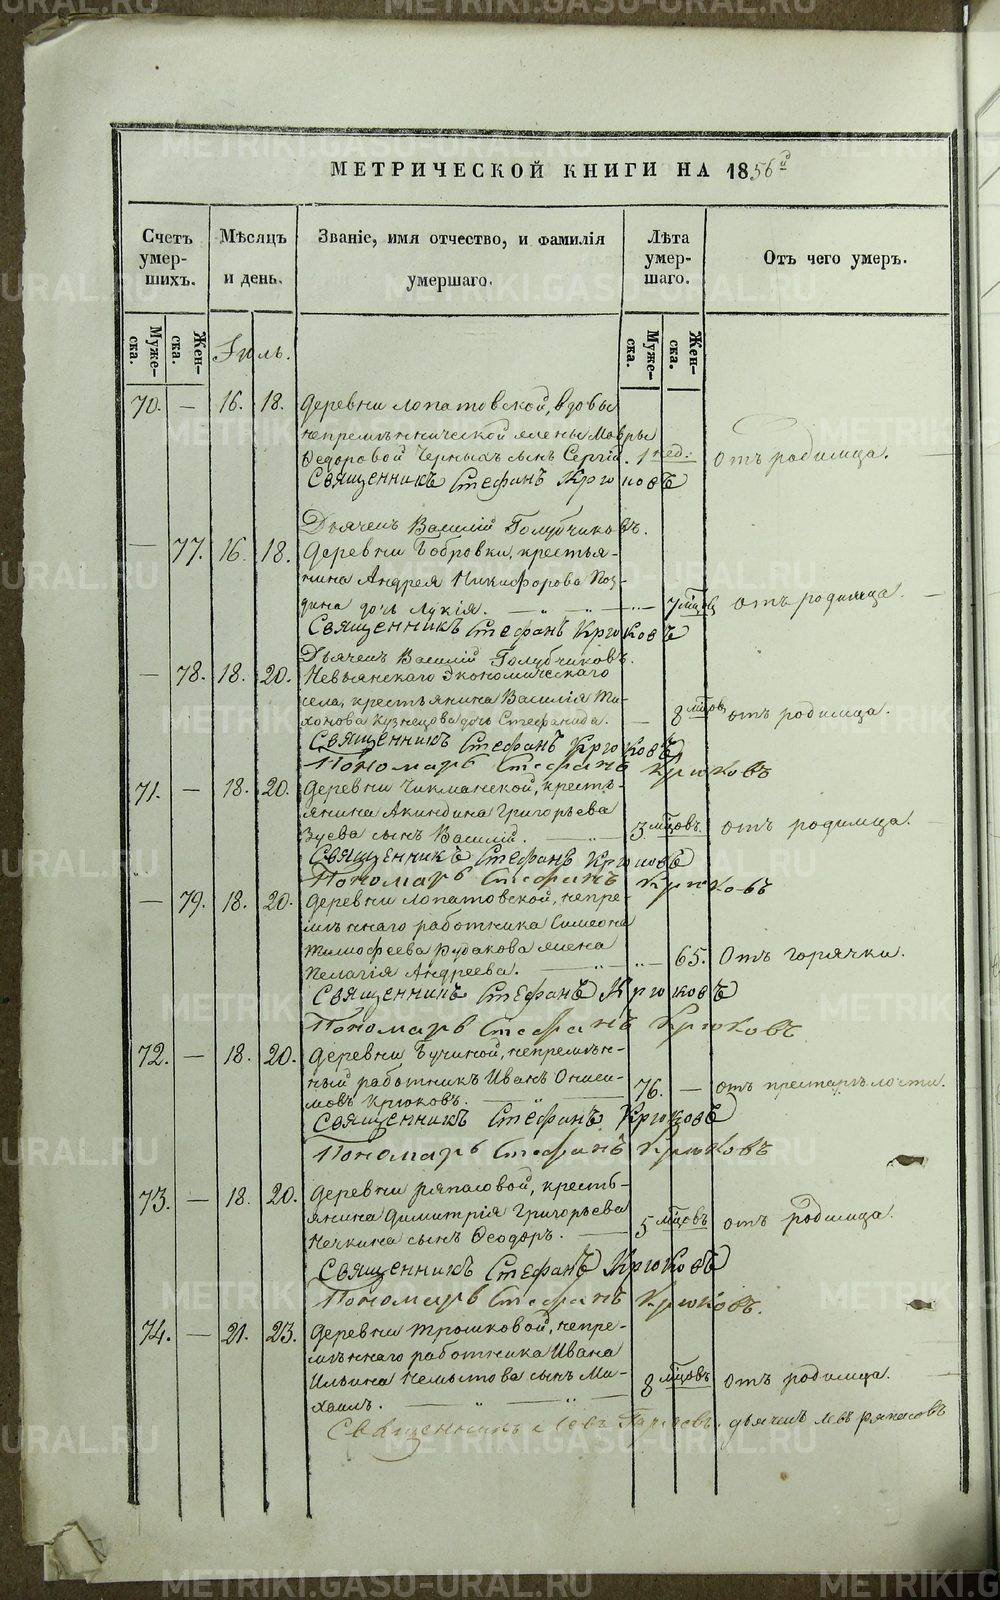 МЕТРИЧЕСКОЙ КНИГИ НА 1856й
Счетъ умерших. Мѣсяцъ и день. Званіе, имя отчество, и фамилія умершаго. Лѣта умершаго. Отъ чего умеръ.
Мужеска. Женска. Іюль. Мужеска. Женска.
70. — 16. 18. Деревни Лопатовской, вдовы
непремѣннической жены Мавры
Ѳедоровой Черныхъ сынъ Сергій. 1 нед: отъ родимца.
Священникъ Стефанъ Крюковъ
Дьячекъ Василій Голубчиковъ.
— 77. 16. 18. Деревни Бобровки, крестья-
нина Андрея Никифорова Поз-
дина дочь Лукія. 7 мцовъ отъ родимца.
Священникъ Стефанъ Крюковъ
Дьячекъ Василій Голубчиковъ.
— 78. 18. 20. Невьянскаго Экономическаго
села, крестьянина Василія Ти-
хонова Кузнецова дочь Стефанида. — 8 мцовъ отъ родимца.
Священникъ Стефанъ Крюковъ
Пономарь Стефанъ Крюковъ
71. — 18. 20. Деревни Чикманской, кресть-
янина Акиндина Григорьева
Зуева сынъ Василій. 3 мцовъ. отъ родимца.
Священникъ Стефанъ Крюковъ
Пономарь Стефанъ Крюковъ
— 79. 18. 20. Деревни Лопатовской, непре-
мѣннаго работника Симеона
Тимофеева Рудакова жена
Пелагія Андреева. 65. Отъ горячки.
Священникъ Стефанъ Крюковъ
Пономарь Стефанъ Крюковъ
72. — 18. 20. Деревни Бучиной, непремѣн-
ный работникъ Иванъ Ониси-
мовъ Крюковъ. 76. — отъ престарѣлости.
Священникъ Стефанъ Крюковъ
Пономарь Стефанъ Крюковъ
73. — 18. 20. Деревни Ряпасовой, кресть-
янина Димитрія Григорьева
Нечкина сынъ Ѳеодоръ. 5 мцовъ отъ родимца.
Священникъ Стефанъ Крюковъ
Пономарь Стефанъ Крюковъ.
74. — 21. 23. Деревни Трошковой, непре-
мѣннаго работника Ивана
Ильина Немытова сынъ Ми-
хаилъ. 8 мцовъ отъ родимца.
Священникъ Левъ дьячекъ Левъ Ряпасовъ
METRIKI.GASO-URAL.RU